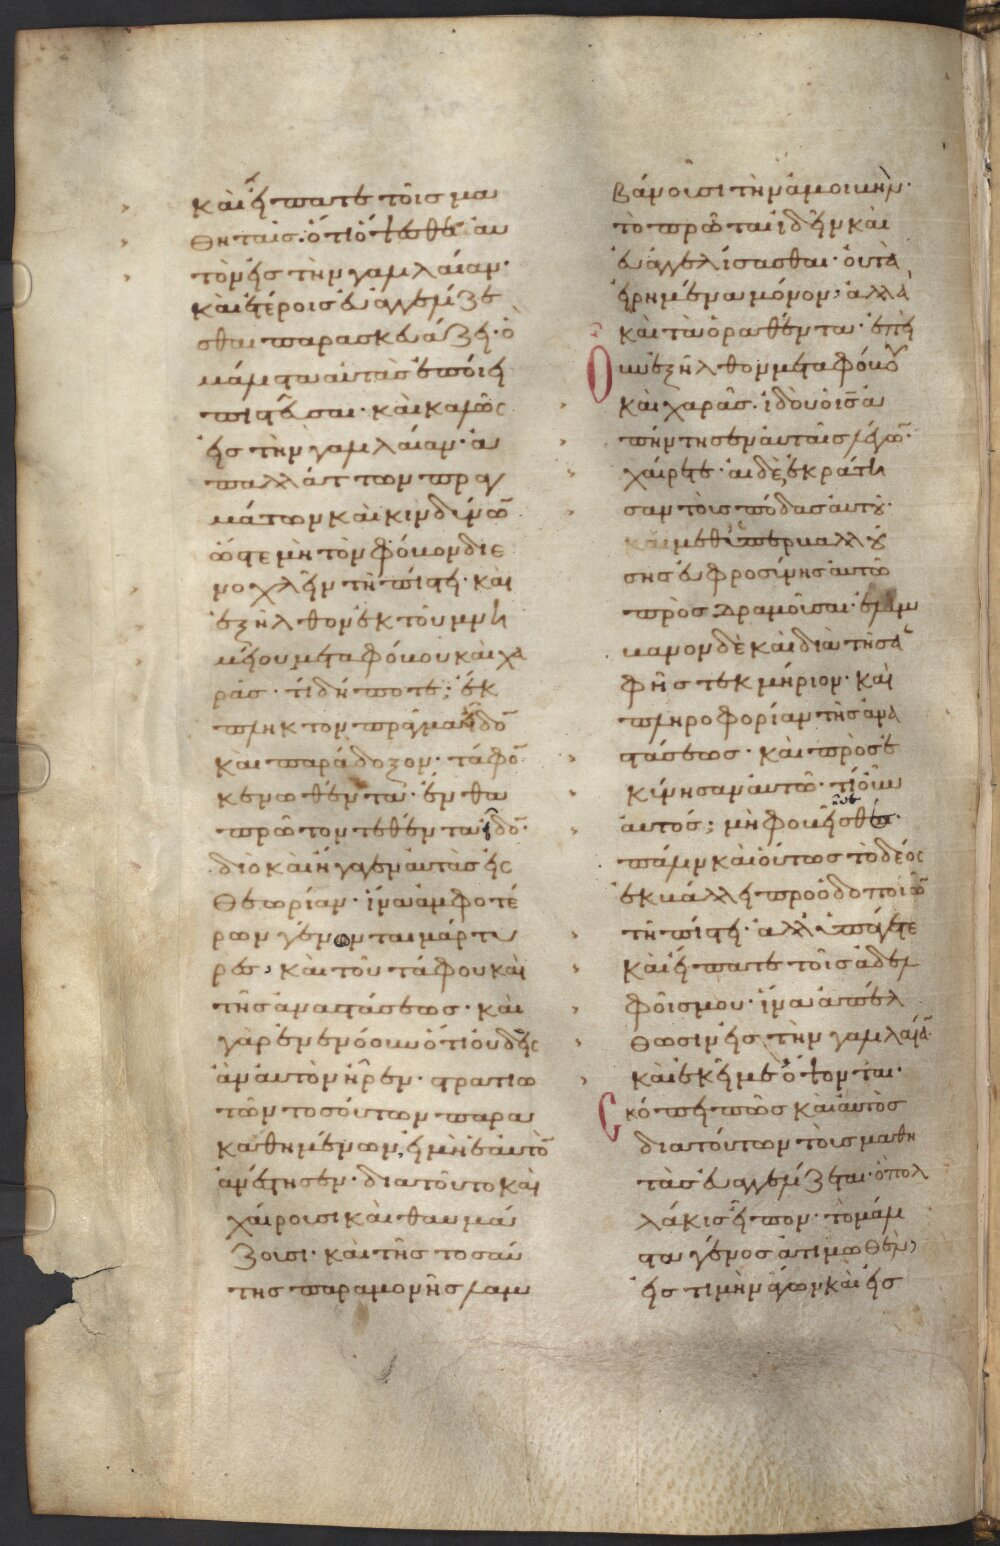 καὶ εἴπατε τοῖς μα
θηταῖς. ὅτι ὄψεσθε αυ
τὸν εἰς τὴν γαλιλαίαν·
καὶ ἑτέροις εὐαγγελίζε
σθαι παρασκευάζει· ὃ
μάλιστα αὐτὰς ἐποίει
πιστεῦσαι· καὶ καλῶς
εἰς τὴν γαλιλαίαν· ἀ
παλλάττων πραγ
μάτων καὶ κινδύνων
ὥστε μὴ τὸν φόβον διε
νοχλεῖν τῇ πίστει· καὶ
ἐξῆλθον ἐκ τοῦ μνη
μείου μετα φόβου καὶ χα
ρᾶς· τί δή ποτε; ἔκ
πληκτον πρᾶγμα εἶδον
καὶ παράδοξον· τάφον
κενωθέντα· ἔνθα
πρῶτον τεθέντα εἶδον·
διὸ καὶ ἤγαγεν αὐτὰς εἰς
θεωρίαν· ἵνα ἀμφοτέ
ρων γένωνται μάρτυ
ρες, καὶ τοῦ τάφου καὶ
τῆς ἀναστάσεως· καὶ
γὰρ ἐνενόουν ὅτι οὐδεὶς
ἂν αὐτὸν ἦρεν· στρατιω
τῶν τοσούτων παρα
καθημένων, εἰ μὴ ἑαυτὸν
ἀνέστησεν· διατοῦτο καὶ
χαίρουσι καὶ θαυμά
ζουσι· καὶ τῆς τοσαύ
της παραμονῆς λαμ
βάνουσι τὴν ἀμοιβὴν·
τὸ πρῶται ἰδεῖν καὶ
εὐαγγελίσασθαι· οὐ τὰ
εἰρημένα μόνον, ἀλλὰ
καὶ τὰ ὁραθέντα· ἐπεὶ
οὖν ἐξῆλθον μετα φόβου
καὶ χαρᾶς· ἰδοὺ ὁ ις ἀ
πήντησεν αὐταῖς λέγων·
χαίρετε· αἱ δὲ ἐκράτη
σαν τοὺς πόδας αὐτοῦ·
καὶ μεθ ὑπερβαλλού
σης εὐφροσύνης αὐτῶ
προσδραμοῦσαι· ἐλάμ
βανον δὲ καὶ διὰ τῆς ἁ
φῆς τεκμήριον· καὶ
πληροφορίαν τῆς ἀνα
στάσεως· καὶ προσε
κύνησαν αὐτῶ· τί οὖν
αὐτός; μὴ φοβεῖσθε·
πάλιν καὶ οὗτος τὸ δέος
ἐκβάλλει προοδοποιῶν
τῇ πίστει· ἀλλ ὑπάγετε
καὶ εἴπατε τοῖς ἀδελ
φοῖς μου· ἵνα ἀπέλ
θωσιν εἰς τὴν γαλιλαίαν·
καὶ ἐκεῖ με ὄψονται·
σκόπει πῶς καὶ αὐτὸς
διατούτων τοῖς μαθη
ταῖς εὐαγγελίζεται· ὃ πολ
λάκις εἶπον· τὸ μάλι
στα γένος ἀτιμωθὲν,
εἰς τιμὴν ἄγων καὶ εἰς